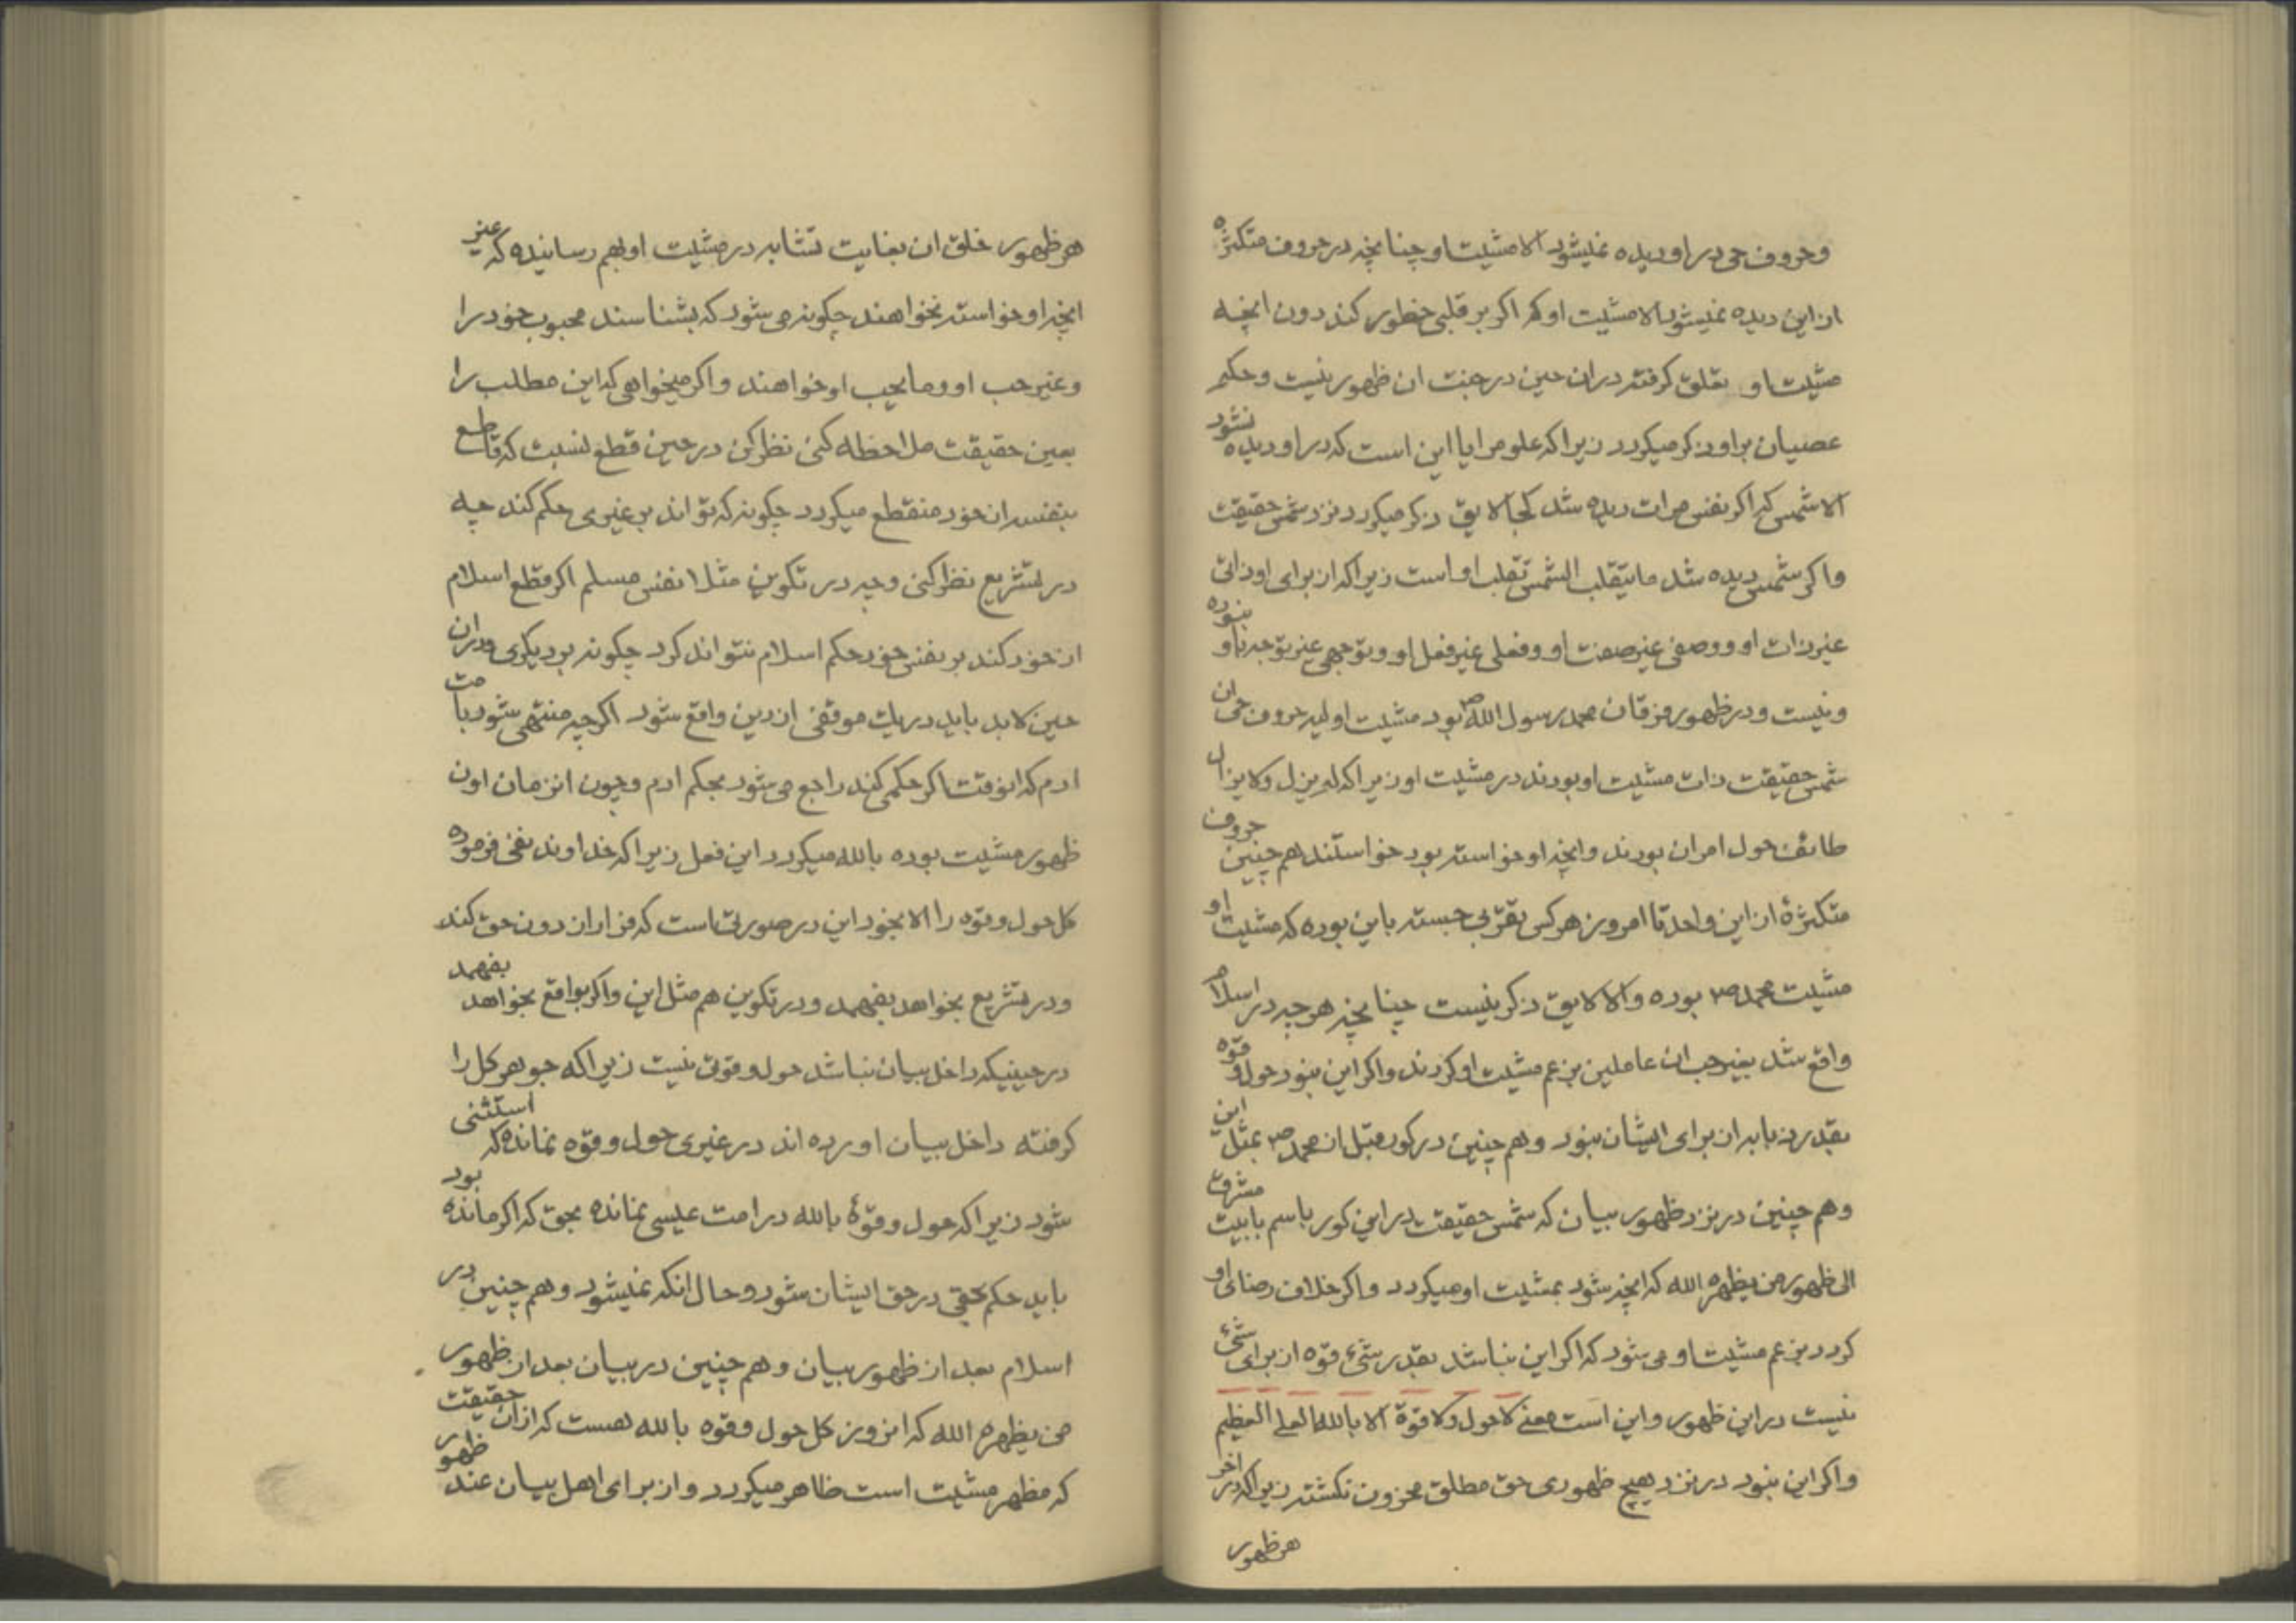 وحروف حی در او دیده نمیشود الا مشیت او چنانچه در حروف متکثره
از این دیده نمیشود الا مشیت او که اکر بر قلبی خطور کند دون انچه
مشیت او تعلق کرفته در ان حین در جنت ان ظهور نیست وحکم
عصیان بر او ذکر میکردد زیرا که علو مرایا این است که در او دیده نشود
الا شمس که اکر نفس مرات دیده شد کجا لایق ذکر میکردد نزد شمس حقیقت
واکر شمس دیده شد ما یتقلب الشمس تقلب او است زیرا که از برای او ذاتی
غیر ذات او ووصفی غیر صفت او وفعلی غیر فعل او وتوجهی غیر توجه باو نبوده
ونیست ودر ظهور فرقان محمد رسول الله ص بود مشیت اولیه حروف حی ان
شمس حقیقت ذات مشیت او بودند در مشیت او زیرا که لم یزل ولا یزال
طائف حول امر ان بودند وانچه او خواسته بود خواستند هم چنین حروف
متکثرهٔ از این واحد تا امروز هر کس تقربی جسته باین بوده که مشیت او
مشیت محمد ص بوده والا لایق ذکر نیست چنانچه هر چه در اسلام
واقع شد بغیر حب ان عاملین بزعم مشیت او کردند واکر این نبود حول وقوه
بقدر ذبابه از برای ایشان نبود وهم چنین در کور قبل از محمد ص بمثل این
وهم چنین در نزد ظهور بیان که شمس حقیقت در این کور باسم بابیت مشرق
الی ظهور من یظهره الله که انچه شود بمشیت او میکردد واکر خلاف رضای او
کردد بزعم مشیت او می شود که اکر این نباشد بقدر شیء قوه از برای شیء
نیست در این ظهور واین است معنی لا حول ولا قوة الا بالله العلی العظیم
واکر این نبود در نزد هیچ ظهوری حق مطلق محزون نکشته زیرا که در اخر
هر ظهور
هر ظهور خلق ان بغایت تشابه در مشیت او بهم رسانیده که غیر
انچه او خواسته نخواهند چکونه می شود که بشناسند محبوب خود را
وغیر حب او وما یحب او خواهند واکر میخواهی که این مطلب را
بعین حقیقت ملاحظه کنی نظر کن در حین قطع نسبت که قاطع
بنفسه از خود منقطع میکردد چکونه که تواند بر غیری حکم کند چه
در تشریع نظر کنی وچه در تکوین مثلا نفس مسلم اکر قطع اسلام
از خود کند بر نفس خود حکم اسلام نتواند کرد چکونه بر دیکری ودر ان
حین لابد باید در یک موقفی از دین واقع شود اکر چه منتهی شود بامت
ادم که انوقت اکر حکمی کند راجع می شود بحکم ادم وچون انزمان اون
ظهور مشیت بوده بالله میکردد این فعل زیرا که خداوند نفی فرموده
کل حول وقوه را الا بخود این در صورتی است که فرار از دون حق کند
ودر تشریع بخواهد بفهمد ودر تکوین هم مثل این واکر بواقع بخواهد بفهمد
در حینیکه داخل بیان نباشد حول وقوتی نیست زیرا که جوهر کل را
کرفته داخل بیان اورده اند در غیری حول وقوه نمانده که استثنی
شود زیرا که حول وقوهٔ بالله در امت عیسی نمانده بحق که اکر مانده بود
باید حکم حقی در حق ایشان شود وحال انکه نمیشود وهم چنین در
اسلام بعد از ظهور بیان وهم چنین در بیان بعد از ظهور
من یظهره الله که انروز کل حول وقوه بالله هست که از ان حقیقت
که مظهر مشیت است ظاهر میکردد واز برای اهل بیان عند ظهور